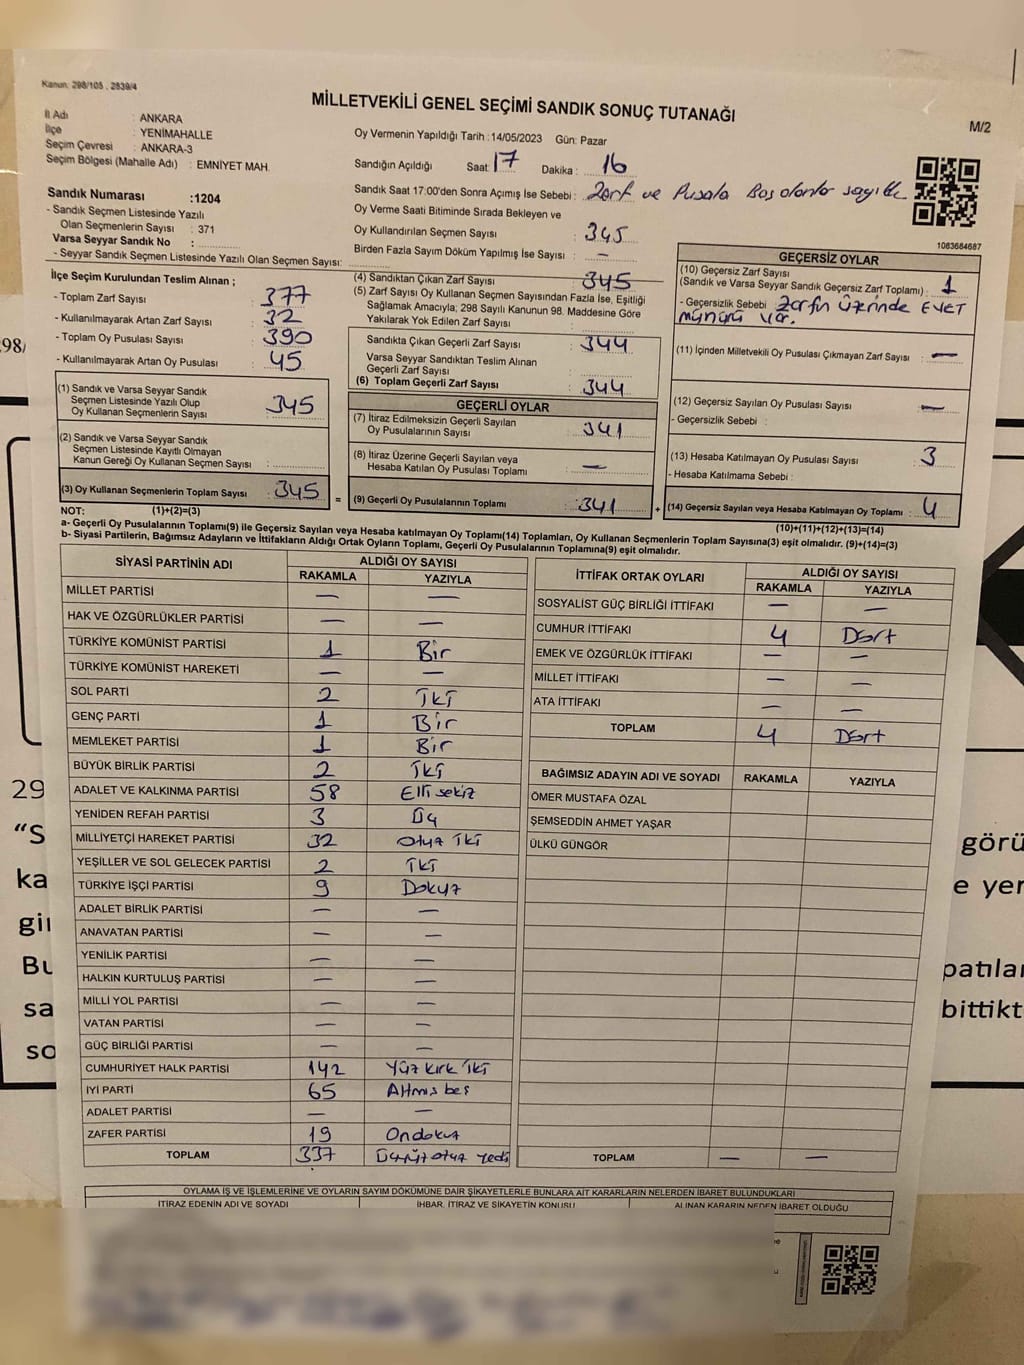 Kanun: 298/105 , 2839/4
MİLLETVEKİLİ GENEL SEÇİMİ SANDIK SONUÇ TUTANAĞI
M/2
İl Adı : ANKARA
İlçe : YENİMAHALLE
Seçim Çevresi : ANKARA-3
Seçim Bölgesi (Mahalle Adı) : EMNİYET MAH.
Sandık Numarası :1204
- Sandık Seçmen Listesinde Yazılı
Olan Seçmenlerin Sayısı : 371
Varsa Seyyar Sandık No :
- Seyyar Sandık Seçmen Listesinde Yazılı Olan Seçmen Sayısı:
Oy Vermenin Yapıldığı Tarih : 14/05/2023 Gün: Pazar
Sandığın Açıldığı Saat: 17 Dakika : 16
Sandık Saat 17:00'den Sonra Açımış İse Sebebi : Zarf ve Pusula Boş olanlar sayıldı
Oy Verme Saati Bitiminde Sırada Bekleyen ve
Oy Kullandırılan Seçmen Sayısı : 345
Birden Fazla Sayım Döküm Yapılmış İse Sayısı : —
1083684687
İlçe Seçim Kurulundan Teslim Alınan ;
- Toplam Zarf Sayısı : 377
- Kullanılmayarak Artan Zarf Sayısı : 32
- Toplam Oy Pusulası Sayısı : 390
- Kullanılmayarak Artan Oy Pusulası : 45
(1) Sandık ve Varsa Seyyar Sandık
Seçmen Listesinde Yazılı Olup
Oy Kullanan Seçmenlerin Sayısı : 345
(2) Sandık ve Varsa Seyyar Sandık
Seçmen Listesinde Kayıtlı Olmayan
Kanun Gereği Oy Kullanan Seçmen Sayısı :
(3) Oy Kullanan Seçmenlerin Toplam Sayısı : 345
(4) Sandıktan Çıkan Zarf Sayısı : 345
(5) Zarf Sayısı Oy Kullanan Seçmen Sayısından Fazla İse, Eşitliği
Sağlamak Amacıyla; 298 Sayılı Kanunun 98. Maddesine Göre
Yakılarak Yok Edilen Zarf Sayısı :
Sandıkta Çıkan Geçerli Zarf Sayısı : 344
Varsa Seyyar Sandıktan Teslim Alınan
Geçerli Zarf Sayısı :
(6) Toplam Geçerli Zarf Sayısı : 344
GEÇERLİ OYLAR
(7) İtiraz Edilmeksizin Geçerli Sayılan
Oy Pusulalarının Sayısı : 341
(8) İtiraz Üzerine Geçerli Sayılan veya
Hesaba Katılan Oy Pusulası Toplamı : —
= (9) Geçerli Oy Pusulalarının Toplamı : 341
GEÇERSİZ OYLAR
(10) Geçersiz Zarf Sayısı
(Sandık ve Varsa Seyyar Sandık Geçersiz Zarf Toplamı) : 1
- Geçersizlik Sebebi : Zarfın Üzerinde EVET
mührü var.
(11) İçinden Milletvekili Oy Pusulası Çıkmayan Zarf Sayısı : —
(12) Geçersiz Sayılan Oy Pusulası Sayısı : —
- Geçersizlik Sebebi :
(13) Hesaba Katılmayan Oy Pusulası Sayısı : 3
- Hesaba Katılmama Sebebi :
+ (14) Geçersiz Sayılan veya Hesaba Katılmayan Oy Toplamı : 4
NOT: (1)+(2)=(3) (10)+(11)+(12)+(13)=(14)
a- Geçerli Oy Pusulalarının Toplamı(9) ile Geçersiz Sayılan veya Hesaba katılmayan Oy Toplamı(14) Toplamları, Oy Kullanan Seçmenlerin Toplam Sayısına(3) eşit olmalıdır. (9)+(14)=(3)
b- Siyasi Partilerin, Bağımsız Adayların ve İttifakların Aldığı Ortak Oyların Toplamı, Geçerli Oy Pusulalarının Toplamına(9) eşit olmalıdır.
SİYASİ PARTİNİN ADI ALDIĞI OY SAYISI
RAKAMLA YAZIYLA
MİLLET PARTİSİ — —
HAK VE ÖZGÜRLÜKLER PARTİSİ — —
TÜRKİYE KOMÜNİST PARTİSİ 1 Bir
TÜRKİYE KOMÜNİST HAREKETİ — —
SOL PARTİ 2 İki
GENÇ PARTİ 1 Bir
MEMLEKET PARTİSİ 1 Bir
BÜYÜK BİRLİK PARTİSİ 2 İki
ADALET VE KALKINMA PARTİSİ 58 Elli sekiz
YENİDEN REFAH PARTİSİ 3 Üç
MİLLİYETÇİ HAREKET PARTİSİ 32 Otuz İki
YEŞİLLER VE SOL GELECEK PARTİSİ 2 İki
TÜRKİYE İŞÇİ PARTİSİ 9 Dokuz
ADALET BİRLİK PARTİSİ — —
ANAVATAN PARTİSİ — —
YENİLİK PARTİSİ — —
HALKIN KURTULUŞ PARTİSİ — —
MİLLİ YOL PARTİSİ — —
VATAN PARTİSİ — —
GÜÇ BİRLİĞİ PARTİSİ — —
CUMHURİYET HALK PARTİSİ 142 Yüz kırk iki
İYİ PARTİ 65 Altmış beş
ADALET PARTİSİ — —
ZAFER PARTİSİ 19 Ondokuz
TOPLAM 337 Üçyüz otuz yedi
İTTİFAK ORTAK OYLARI ALDIĞI OY SAYISI
RAKAMLA YAZIYLA
SOSYALİST GÜÇ BİRLİĞİ İTTİFAKI — —
CUMHUR İTTİFAKI 4 Dört
EMEK VE ÖZGÜRLÜK İTTİFAKI — —
MİLLET İTTİFAKI — —
ATA İTTİFAKI — —
TOPLAM 4 Dört
BAĞIMSIZ ADAYIN ADI VE SOYADI RAKAMLA YAZIYLA
ÖMER MUSTAFA ÖZAL
ŞEMSEDDİN AHMET YAŞAR
ÜLKÜ GÜNGÖR
TOPLAM — —
OYLAMA İŞ VE İŞLEMLERİNE VE OYLARIN SAYIM DÖKÜMÜNE DAİR ŞİKAYETLERLE BUNLARA AİT KARARLARIN NELERDEN İBARET BULUNDUKLARI
İTİRAZ EDENİN ADI VE SOYADI İHBAR, İTİRAZ VE ŞİKAYETİN KONUSU ALINAN KARARIN NEDEN İBARET OLDUĞU
298/
29
"S
ka
gi
Bu
sa
so
görü
e yer
patılar
bittikt